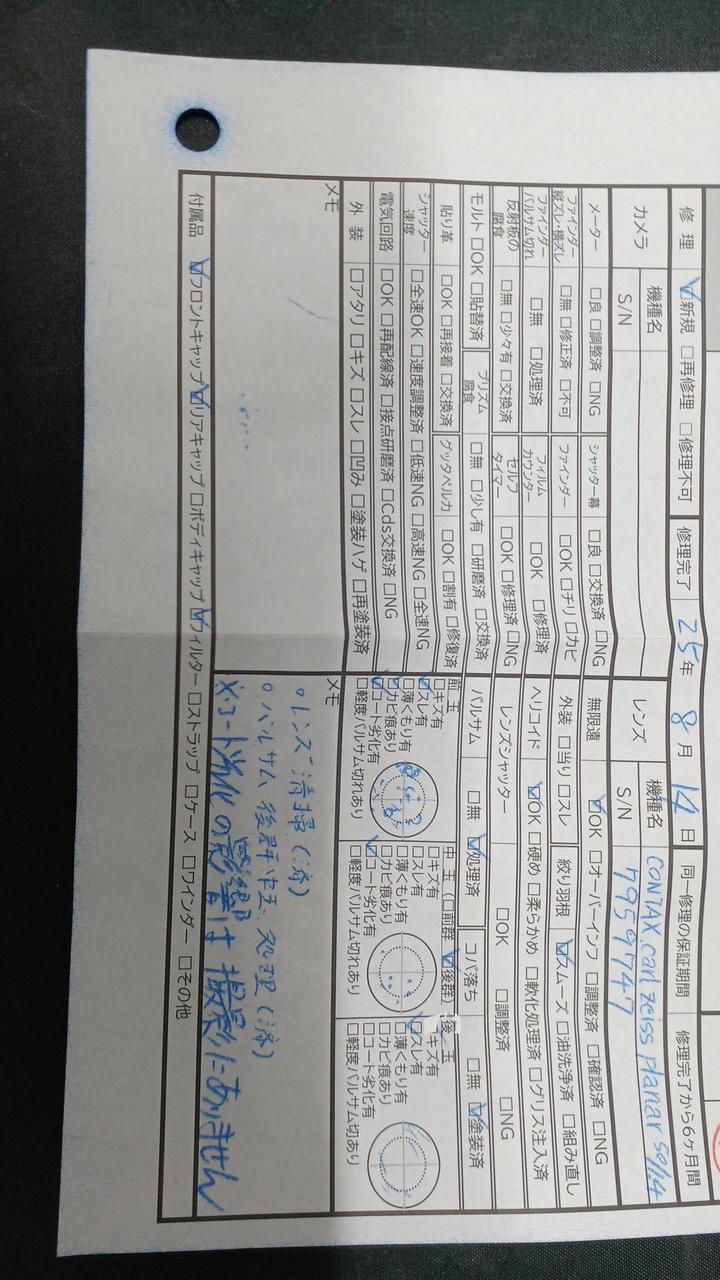 修理 ☑新規 □再修理 □修理不可 修理完了 25年 8月 14日 同一修理の保証期間 修理完了から6ヶ月間
カメラ 機種名
S/N
メーター □良 □調整済 □NG シャッター幕 □良 □交換済 □NG
ファインダー縦ズレ・横ズレ □無 □修正済 □不可 ファインダー □OK □チリ □カビ
ファインダーバルサム切れ □無 □処理済 フィルムカウンター □OK □修理済
反射板の腐食 □無 □少々有 □交換済 セルフタイマー □OK □修理済 □NG
モルト □OK □貼替済 プリズム腐食 □無 □少し有 □研磨済 □交換済
貼り革 □OK □再接着 □交換済 グッタペルカ □OK □割有 □修復済
シャッター速度 □全速OK □速度調整済 □低速NG □高速NG □全速NG
電気回路 □OK □再配線済 □接点研磨済 □Cds交換済 □NG
外装 □アタリ □キズ □スレ □凹み □塗装ハゲ □再塗装済
メモ
レンズ 機種名 CONTAX. carl zeiss planar 50/1.4
S/N 7959747
無限遠 ☑OK □オーバーインフ □調整済 □確認済 □NG
外装 □当り □スレ 絞り羽根 ☑スムーズ □油洗浄済 □組み直し
ヘリコイド ☑OK □硬め □柔らかめ □軟化処理済 □グリス注入済
レンズシャッター □OK □調整済 □NG
バルサム □無 ☑処理済 コバ落ち □無 ☑塗装済
前玉
□キズ有
☑スレ有
□薄くもり有
☑カビ痕あり
☑コート劣化有
□軽度バルサム切れあり
中玉(□前群 ☑後群)
□キズ有
□スレ有
□薄くもり有
□カビ痕あり
☑コート劣化有
□軽度バルサム切れあり
後玉
キズ有
☑スレ有
□薄くもり有
□カビ痕あり
□コート劣化有
□軽度バルサム切あり
メモ
○レンズ清掃(済)
○バルサム 後群中玉、処理(済)
※コート劣化の影響は撮影にありません
付属品 ☑フロントキャップ ☑リアキャップ □ボディキャップ ☑フィルター □ストラップ □ケース □ワインダー □その他